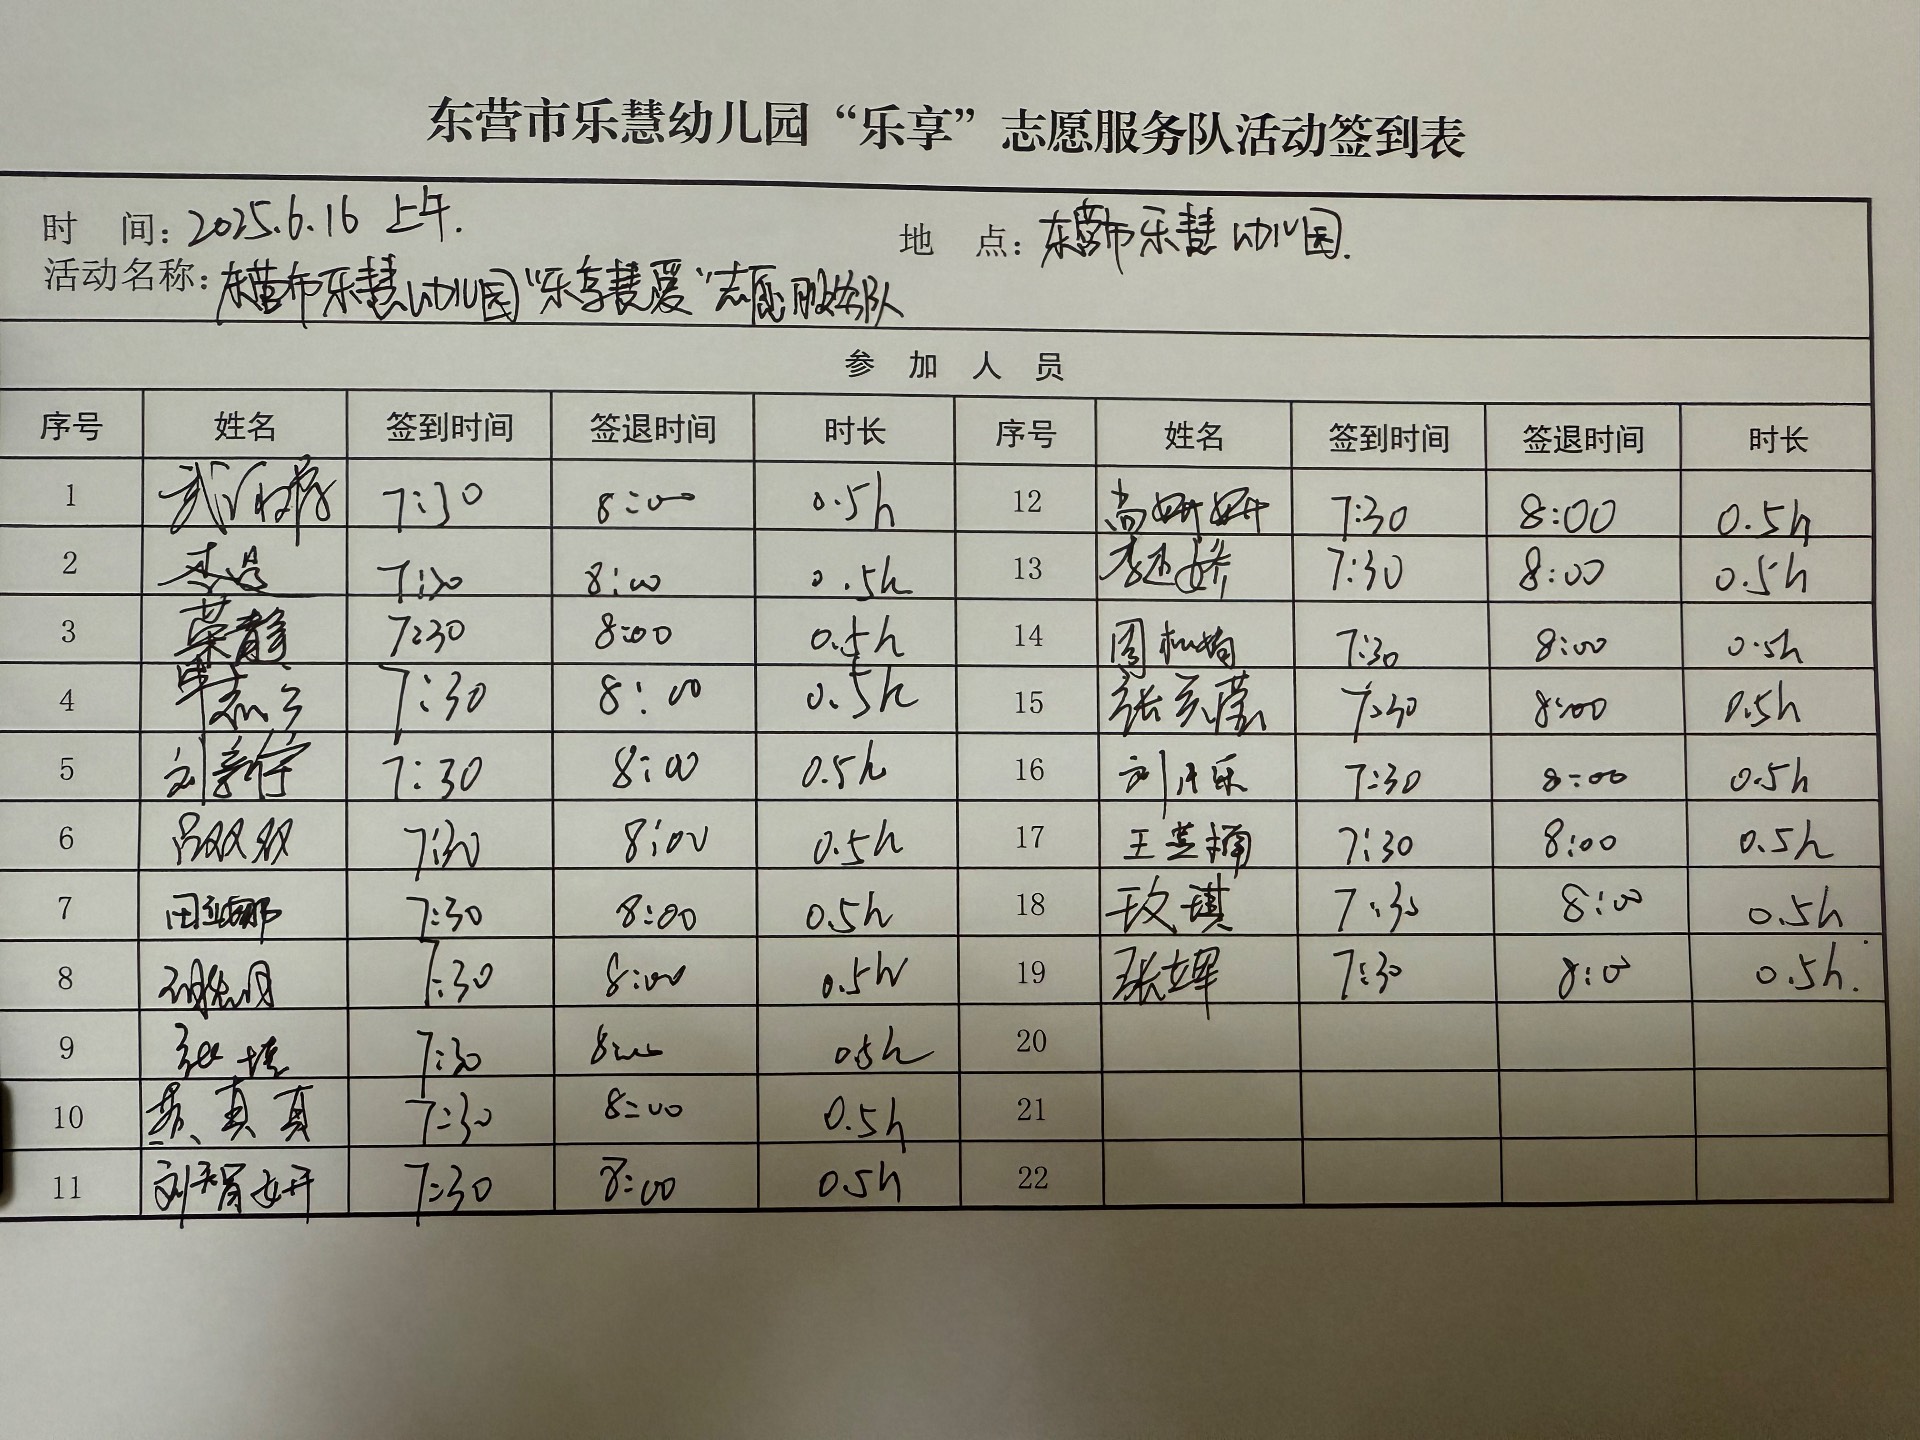 东营市乐慧幼儿园“乐享”志愿服务队活动签到表
时 间：2025.6.16 上午. 地 点：东营市乐慧幼儿园.
活动名称：东营市乐慧幼儿园“乐享慧爱”志愿服务队
参 加 人 员
序号 姓名 签到时间 签退时间 时长 序号 姓名 签到时间 签退时间 时长
1 7:30 8:00 0.5h 12 尚妍妍 7:30 8:00 0.5h
2 7:30 8:00 0.5h 13 7:30 8:00 0.5h
3 荣静 7:30 8:00 0.5h 14 7:30 8:00 0.5h
4 7:30 8:00 0.5h 15 7:30 8:00 0.5h
5 7:30 8:00 0.5h 16 7:30 8:00 0.5h
6 吕双双 7:30 8:00 0.5h 17 7:30 8:00 0.5h
7 7:30 8:00 0.5h 18 7:30 8:00 0.5h
8 7:30 8:00 0.5h 19 7:30 8:00 0.5h.
9 7:30 8:00 0.5h 20
10 苏真真 7:30 8:00 0.5h 21
11 7:30 8:00 0.5h 22